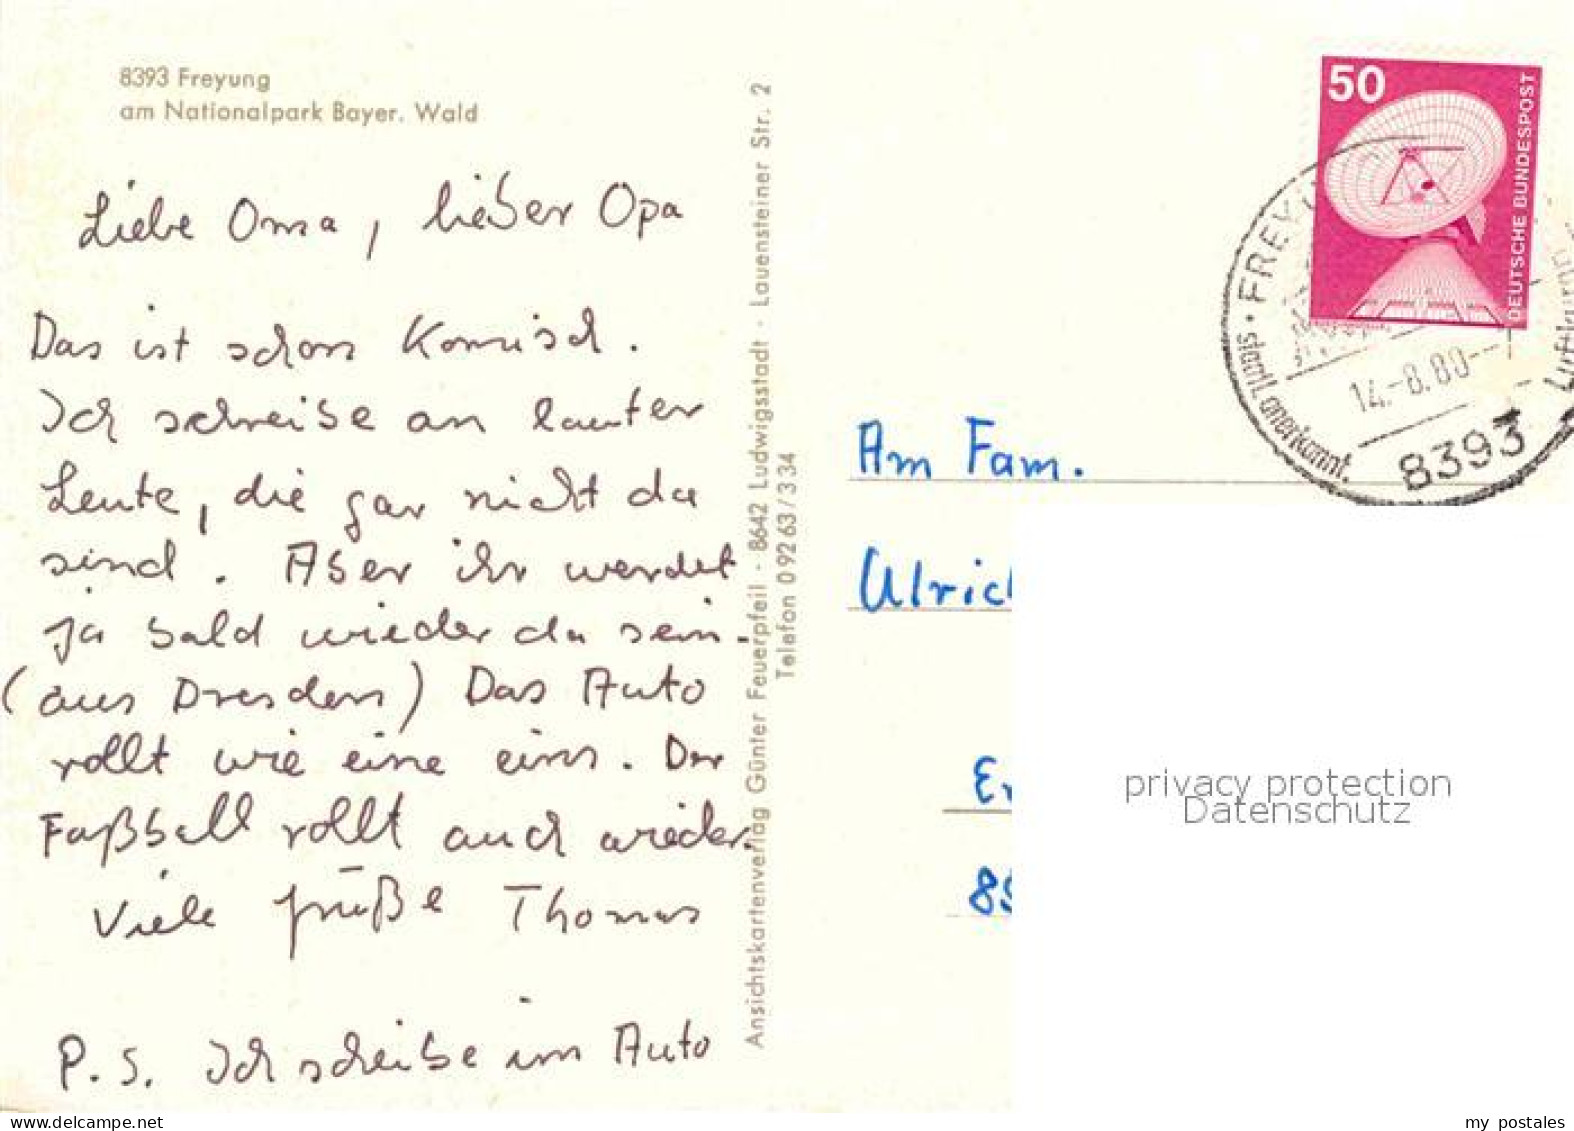 8393 Freyung
am Nationalpark Bayer. Wald
Liebe Oma, lieber Opa
Das ist schon Komisch.
Ich schreibe an lauter
Leute, die gar nicht da
sind. Aber ihr werdet
ja bald wieder da sein.
(aus Dresden) Das Auto
rollt wie eine eins. Der
Faßball rollt auch wieder.
Viele grüße Thomas
P.S. Ich scheibe im Auto
Ansichtskartenverlag Günter Feuerpfeil · 8642 Ludwigsstadt · Lauensteiner Str. 2
Telefon 09263/334
50
DEUTSCHE BUNDESPOST
14.-8.80
8393
staatl. anerkannt.
Am Fam.
Ulrich
privacy protection
Datenschutz
delcampe.net
my_postales